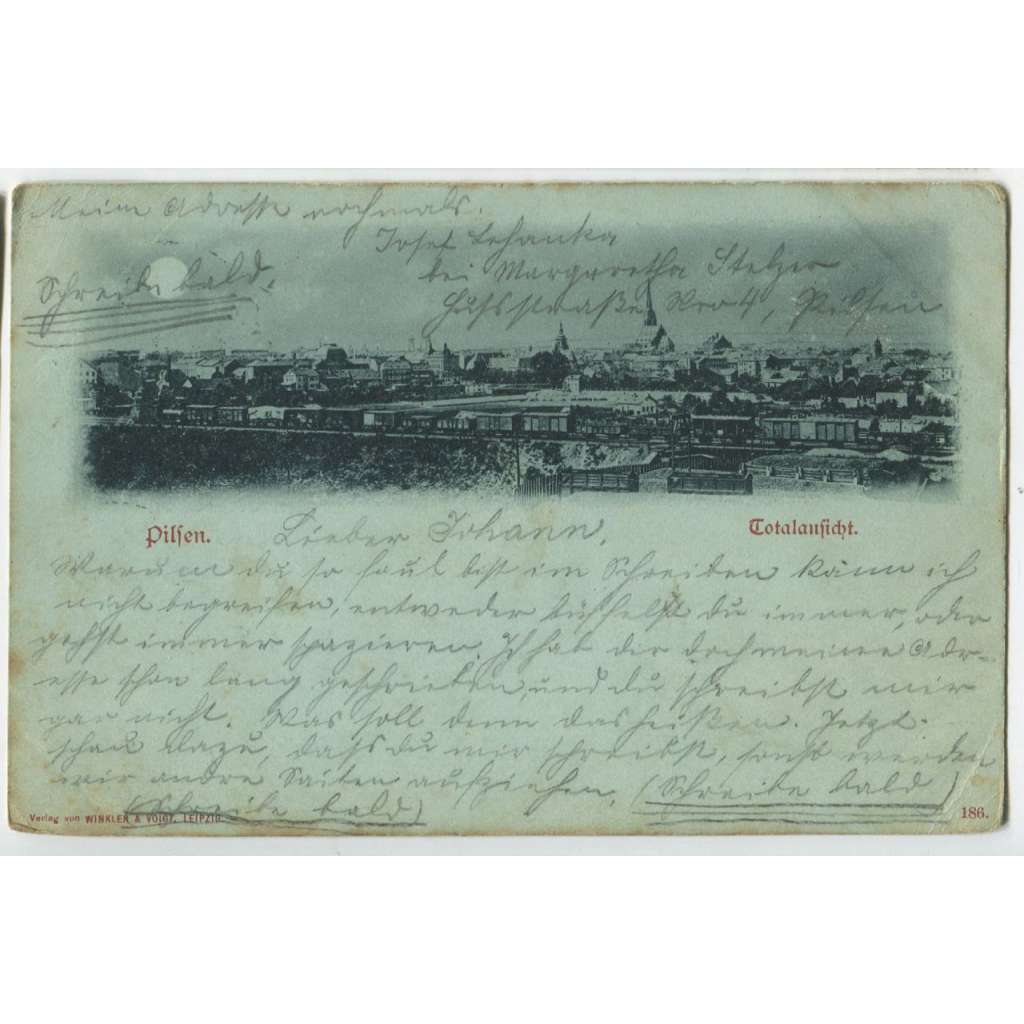 Meine Adresse nochmals.
Josef Lehanka
bei Margaretha Stelzer
Husstraße Nro 4, Pilsen
Schreibe bald.
Pilsen.
Totalansicht.
Lieber Johann,
Warum du so faul bist im Schreiben kann ich
nicht begreifen, entweder büffelst du immer, oder
gehst immer spazieren. Ich hab dir doch meine Adr-
esse schon lang geschrieben und du schreibst mir
gar nicht. Was soll denn das heißen. Jetzt
schau dazu, dass du mir schreibst, sonst werden
wir andre Saiten aufziehen. (Schreibe bald)
(Schreibe bald)
Verlag von WINKLER & VOIGT, LEIPZIG.
186.